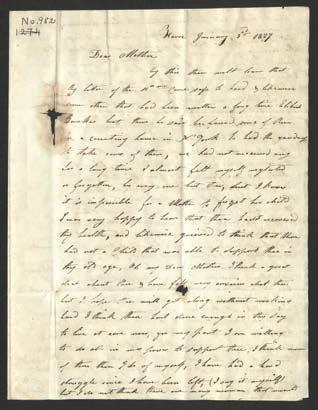 No. 982
1274
January 3rd 1827
Dear Mother
By this thou wilt learn that
thy letter of the 10th came safe to hand & likewise
one other that had been written a long time
sent them, he said he found one of them
in a counting house in N York he had the
to take care of them, we had not received any
for a long time I almost felt myself neglected
or forgotten, by every one but thee, but I know
it is impossible for a Mother to forget her child
I was very happy to hear that thou hadst recovered
thy health, and likewise grieved to think that thou
had not a Child that was able to support thee in
thy old age, Oh my Dear Mother I think a great
deal about thee & have felt very anxious about thee
but I hope thee will get along without working
hard I think thou hast done enough in thy day
to live at ease now, for my part I am willing
to do all in my power to support thee, I think more
of thee than I do of myself, I have had a hard
struggle since I have been left, (I say it myself)
but I do not think there are many women that would